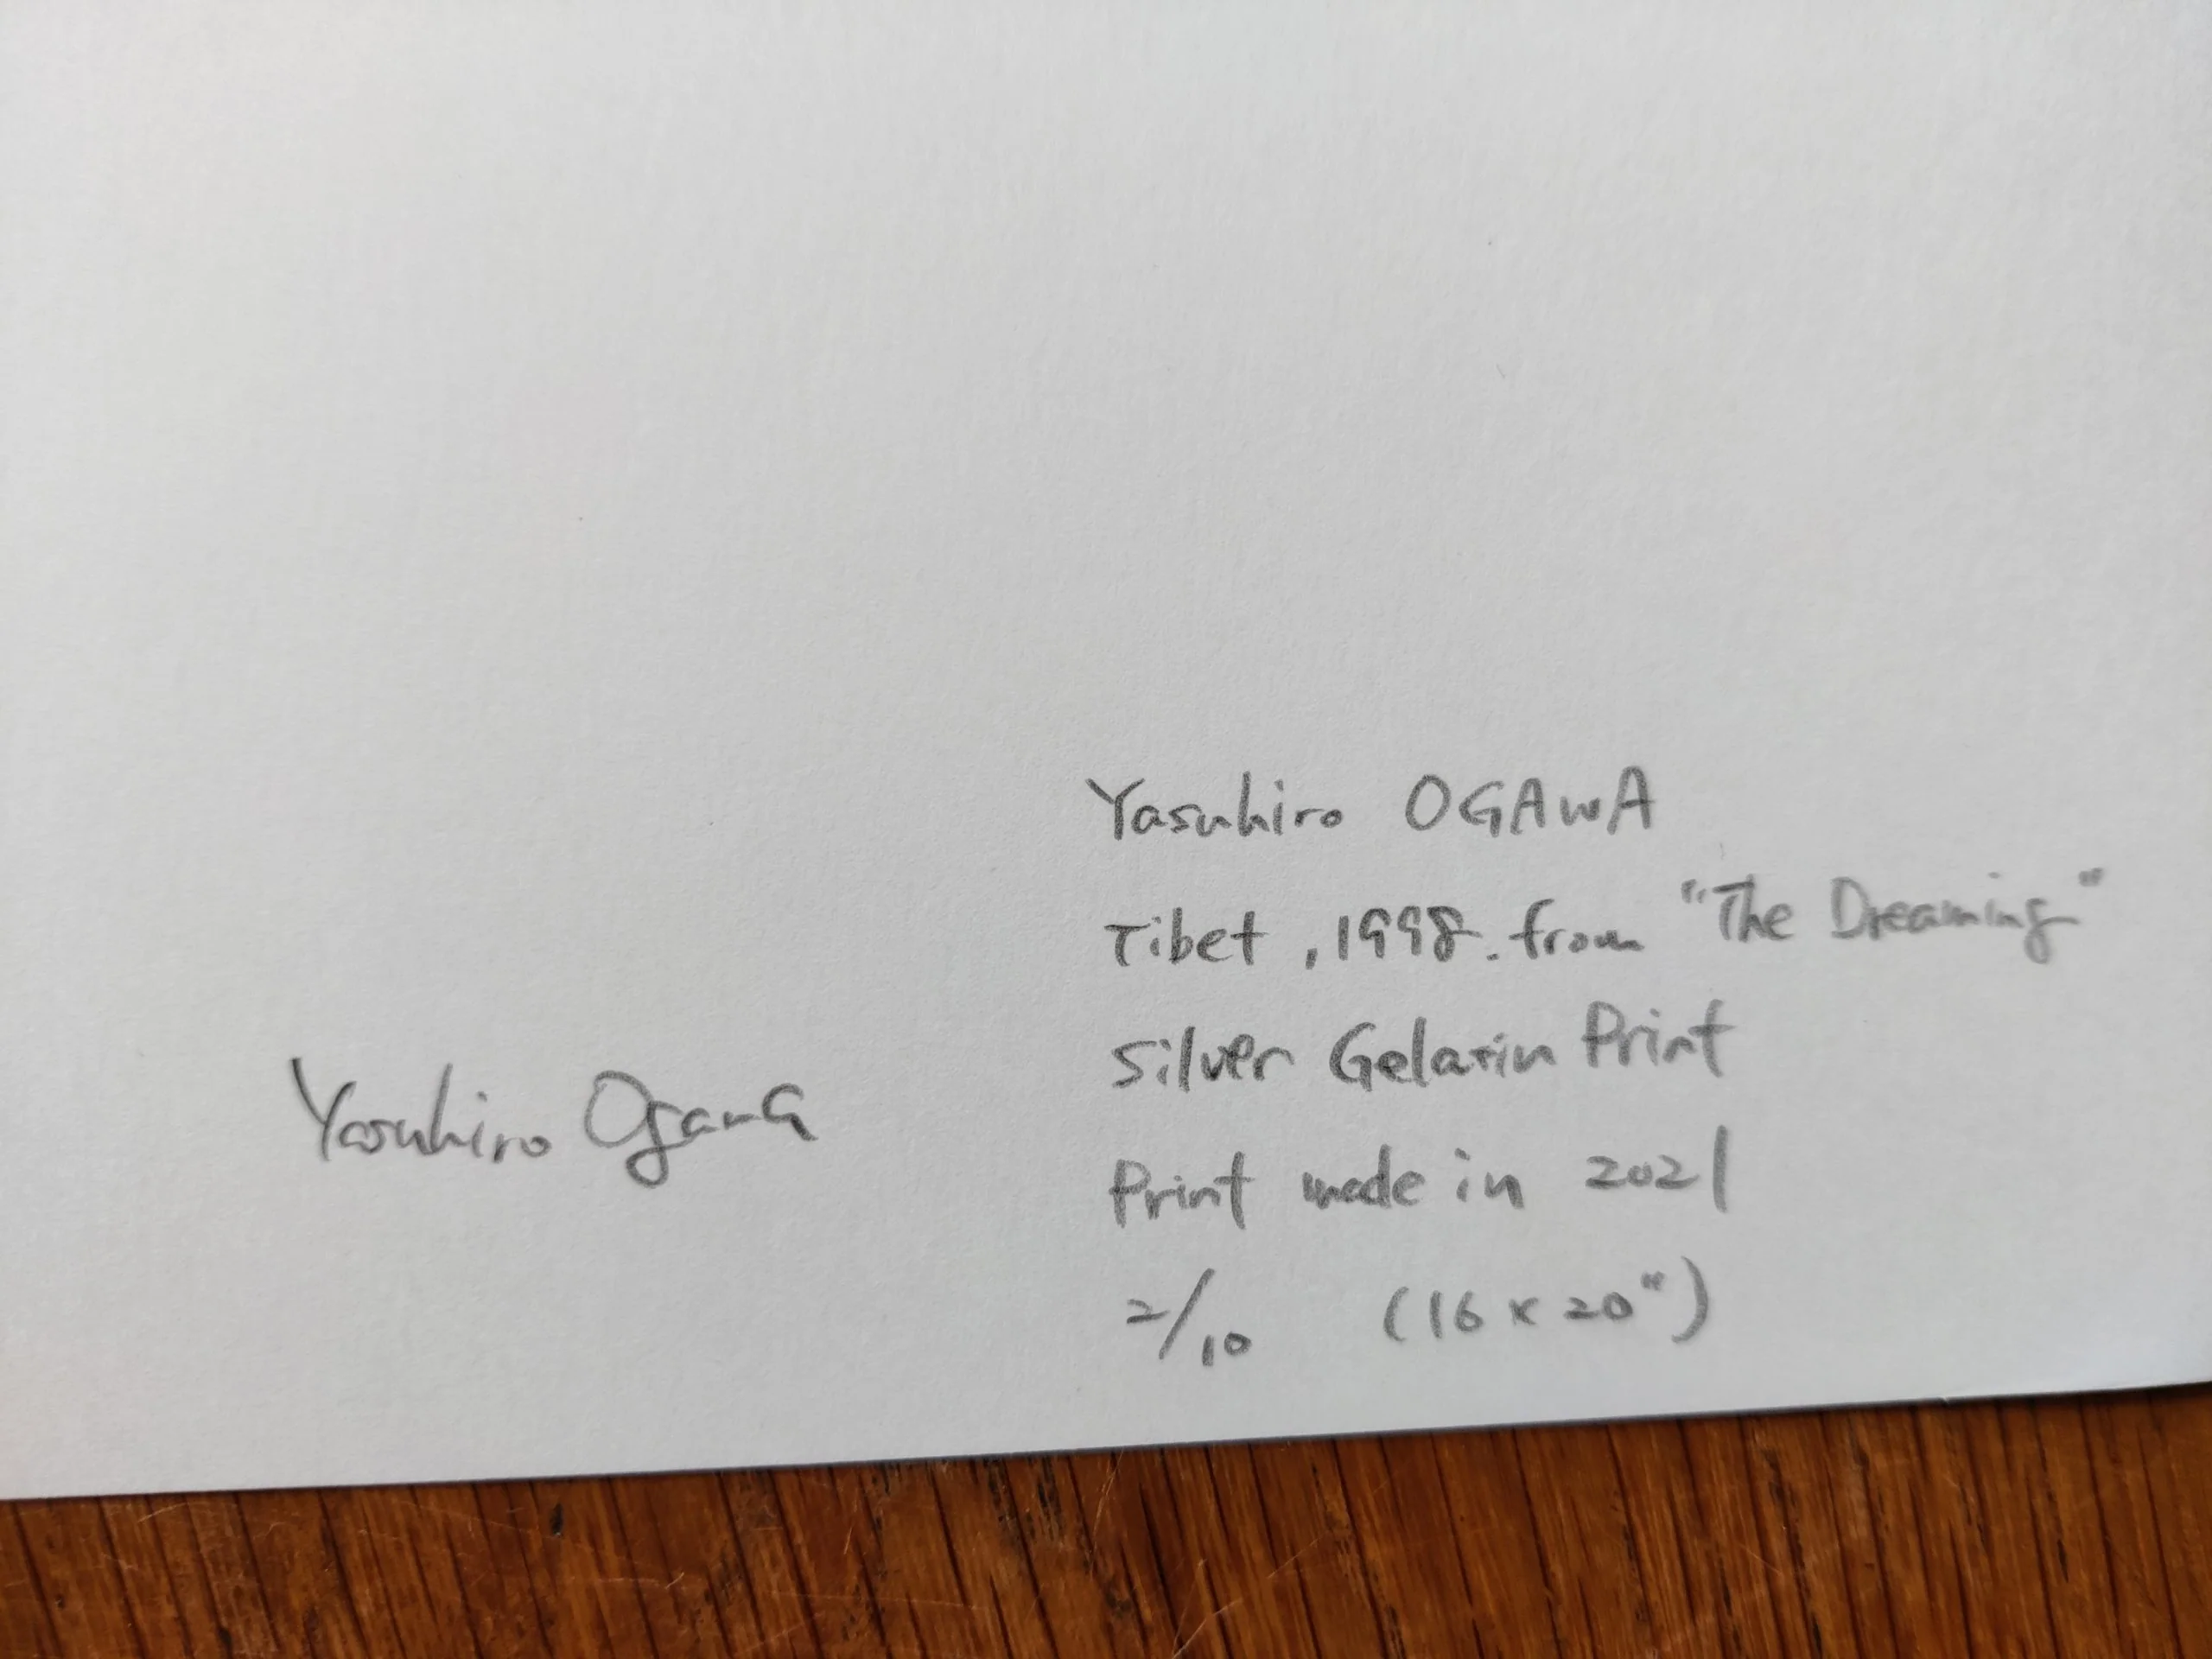 Yasuhiro OGAWA
Tibet, 1998. from "The Dreaming"
Silver Gelatin Print
Print made in 2021
2/10 (16 x 20")
Yasuhiro Ogawa